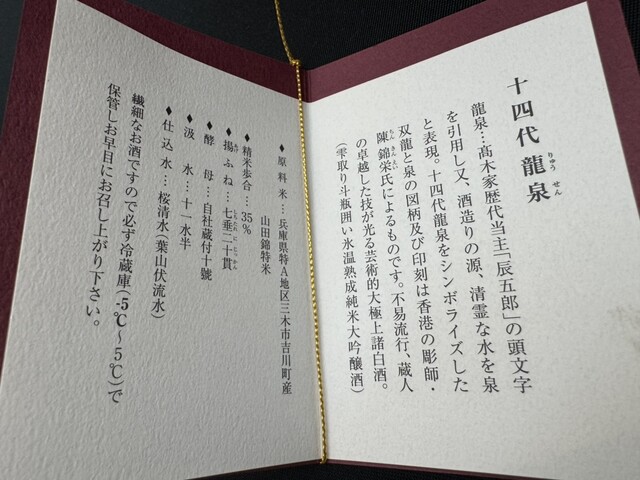 十四代 龍泉
りゅう せん
龍泉…髙木家歴代当主「辰五郎」の頭文字
を引用し又、酒造りの源、清霊な水を泉
と表現。十四代龍泉をシンボライズした
双龍と泉の図柄及び印刻は香港の彫師・
陳錦栄氏によるものです。不易流行、蔵人
ちん きん えい
の卓越した技が光る芸術的大極上諸白酒。
(雫取り斗瓶囲い氷温熟成純米大吟醸酒)
◆原料米…兵庫県特A地区三木市吉川町産
山田錦特米
◆精米歩合…35%
◆揚ふね…七垂二十貫
あげ
しちたれにじっかん
◆酵母…自社蔵付十號
◆汲水…十一水半
◆仕込水…桜清水(葉山伏流水)
繊細なお酒ですので必ず冷蔵庫(-5℃〜5℃)で
保管しお早目にお召し上がり下さい。